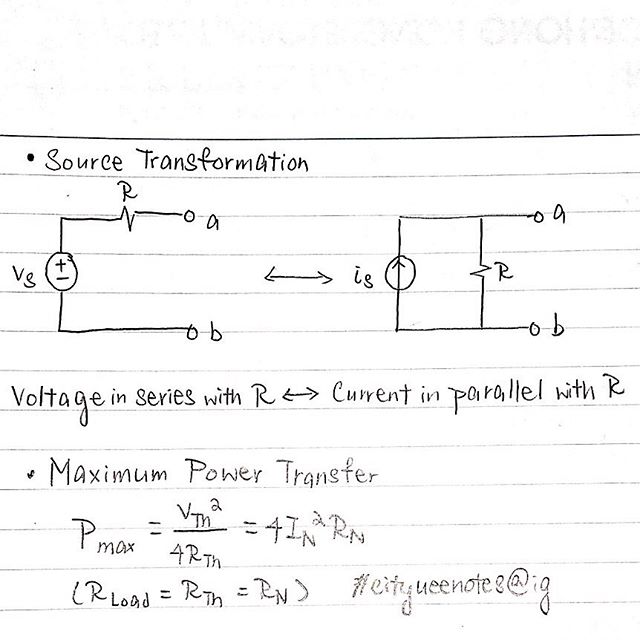 • Source Transformation
R
a
a
Vs
+
−
is
R
b
b
Voltage in series with R ↔ Current in parallel with R
• Maximum Power Transfer
Pmax = VTh² / 4RTh = 4IN²RN
(RLoad = RTh = RN) #cityueenotes@ig